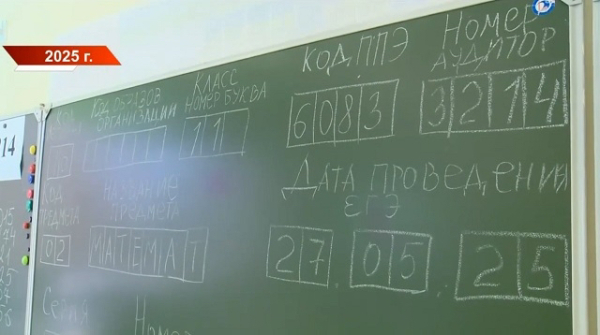 2025 г.
Код образов. организации
Класс
Номер буква
11
Код ППЭ
6083
Номер
аудитор
3214
14
Код
предмета
02
Название
предмета
МАТЕМАТ
Дата проведения
ЕГЭ
27.05.25
Серия
Номер